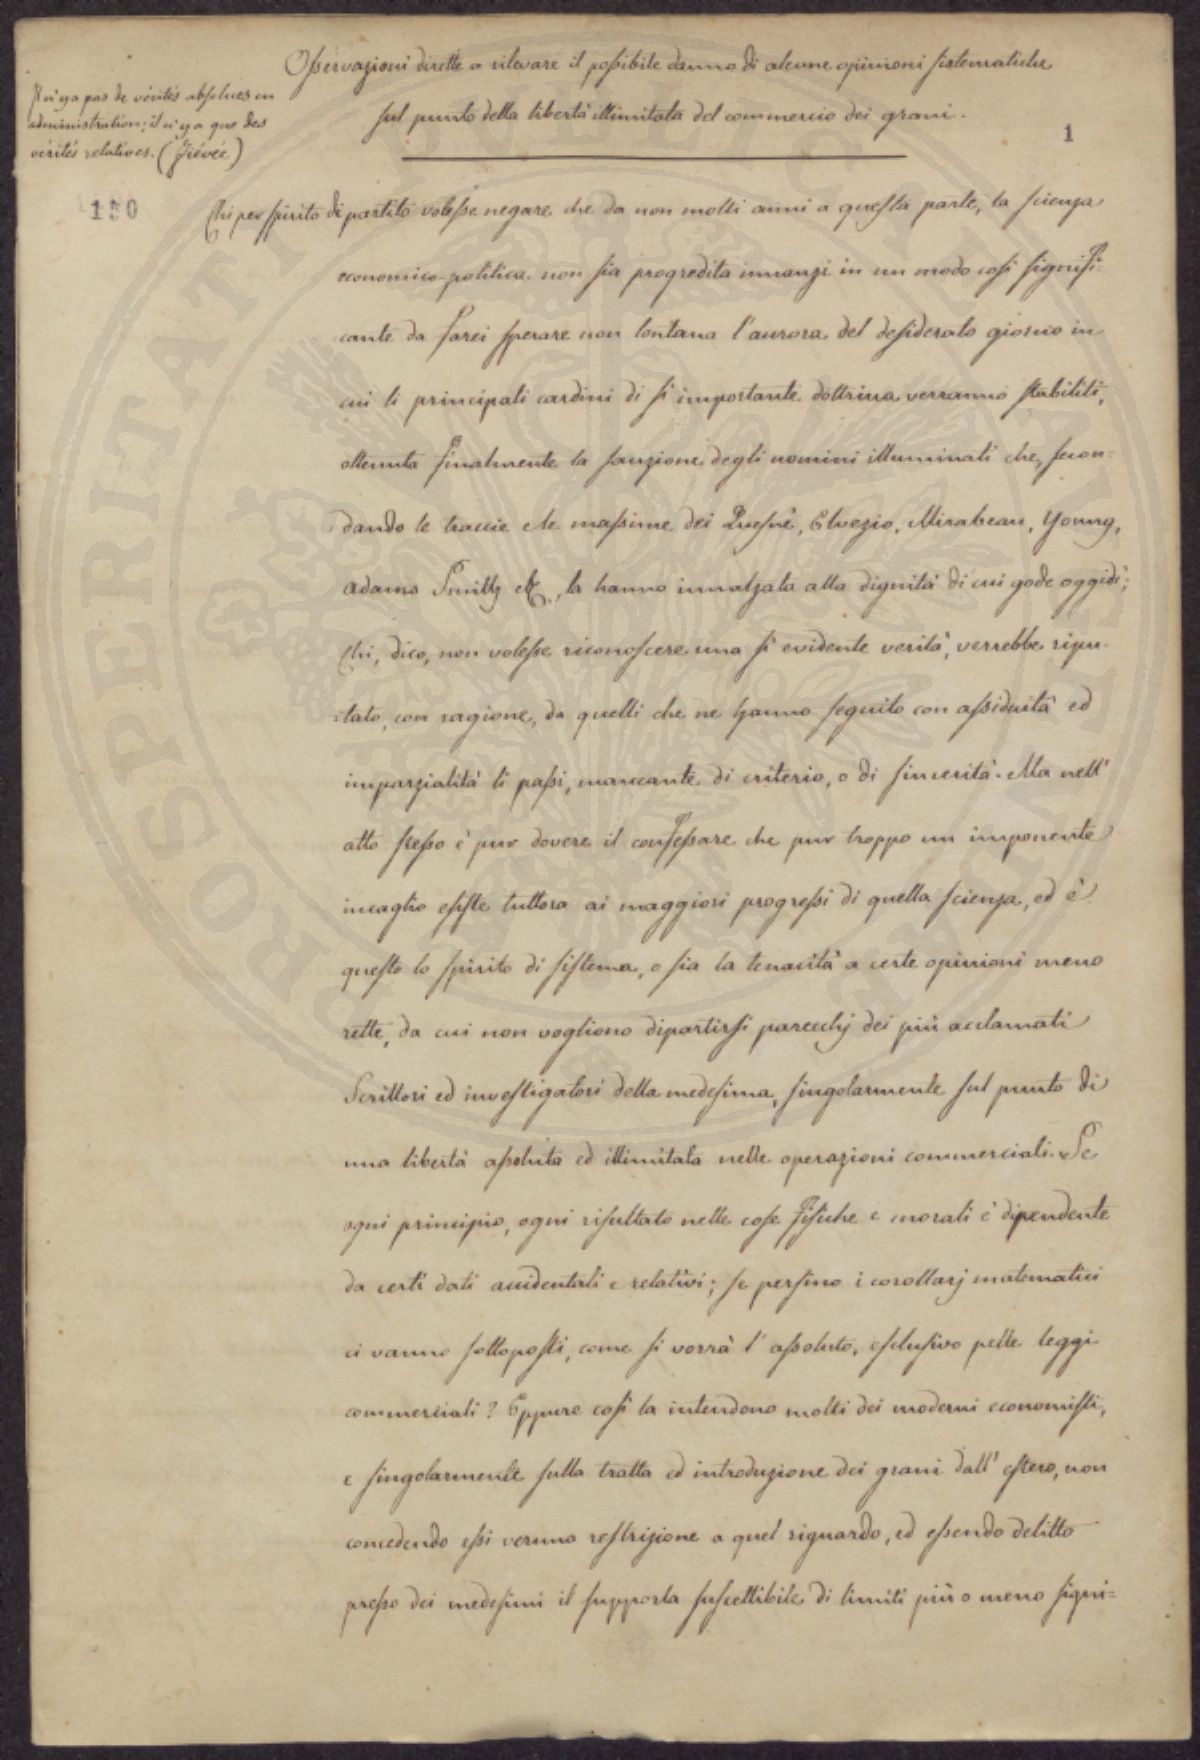 Osservazioni dirette a rilevare il possibile danno di alcune opinioni sistematiche
sul punto della libertà illimitata del commercio dei grani.
Il n'y a pas de vérités absolues en
administration; il n'y a que des
vérités relatives. (Fiévée)
1
130
Chi per spirito di partito volesse negare che da non molti anni a questa parte, la scienza
economico-politica non sia progredita innanzi in un modo così signifi-
cante da farci sperare non lontana l'aurora del desiderato giorno in
cui li principali cardini di sì importante dottrina verranno stabiliti,
ottenuta finalmente la sanzione degli uomini illuminati che, secon=
dando le traccie e le massime dei Quesnè, Elvezio, Mirabeau, Young,
Adams Smith etc., la hanno innalzata alla dignità di cui gode oggidì;
Chi, dico, non volesse riconoscere una sì evidente verità, verrebbe ripu-
=tato, con ragione, da quelli che ne hanno seguito con assiduità ed
imparzialità li passi, mancante di criterio, o di sincerità. Ma nell'
atto stesso è pur dovere il confessare che pur troppo un imponente
incaglio esiste tuttora ai maggiori progressi di quella scienza, ed è
questo lo spirito di sistema, o sia la tenacità a certe opinioni meno
rette, da cui non vogliono dipartirsi parecchj dei più acclamati
Scrittori ed investigatori della medesima, singolarmente sul punto di
una libertà assoluta ed illimitata nelle operazioni commerciali. Se
ogni principio, ogni risultato nelle cose fisiche e morali è dipendente
da certi dati accidentali e relativi; se persino i corollarj matematici
ci vanno sottoposti, come si vorrà l'assoluto, esclusivo pelle leggi
commerciali? Eppure così la intendono molti dei moderni economisti,
e singolarmente sulla tratta ed introduzione dei grani dall'estero, non
concedendo essi veruna restrizione a quel riguardo, ed essendo delitto
presso dei medesimi il supporla suscettibile di limiti più o meno signi=